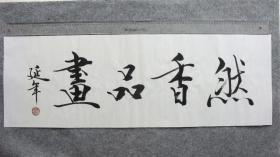 然香品畫
延年